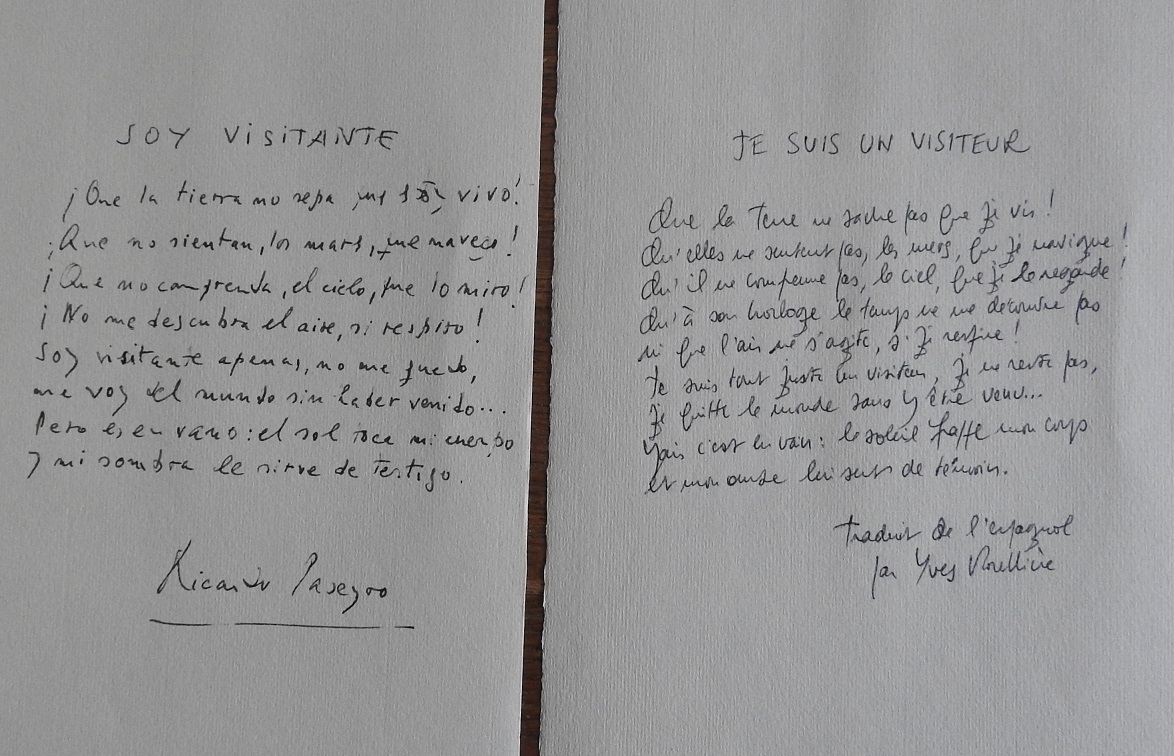 SOY VISITANTE
¡Que la tierra no sepa que soy vivo!
¡Que no sientan, los mares, que navego!
¡Que no comprenda, el cielo, que lo miro!
¡No me descubra el aire, si respiro!
Soy visitante apenas, no me quedo,
me voy del mundo sin haber venido...
Pero es en vano: el sol toca mi cuerpo
y mi sombra le sirve de testigo.
Ricardo Paseyro
JE SUIS UN VISITEUR
Que la Terre ne sache pas que je vis!
Qu'elles ne sentent pas, les mers, que je navigue!
Qu'il ne comprenne pas, le ciel, que je le regarde!
Qu'à son horloge le temps ne me découvre pas
ni que l'air ne s'agite, si je respire!
Je suis tout juste un visiteur, je ne reste pas,
Je quitte le monde sans y être venu...
Mais c'est en vain: le soleil frappe mon corps
et mon ombre lui sert de témoin.
traduit de l'espagnol
par Yves Roullière